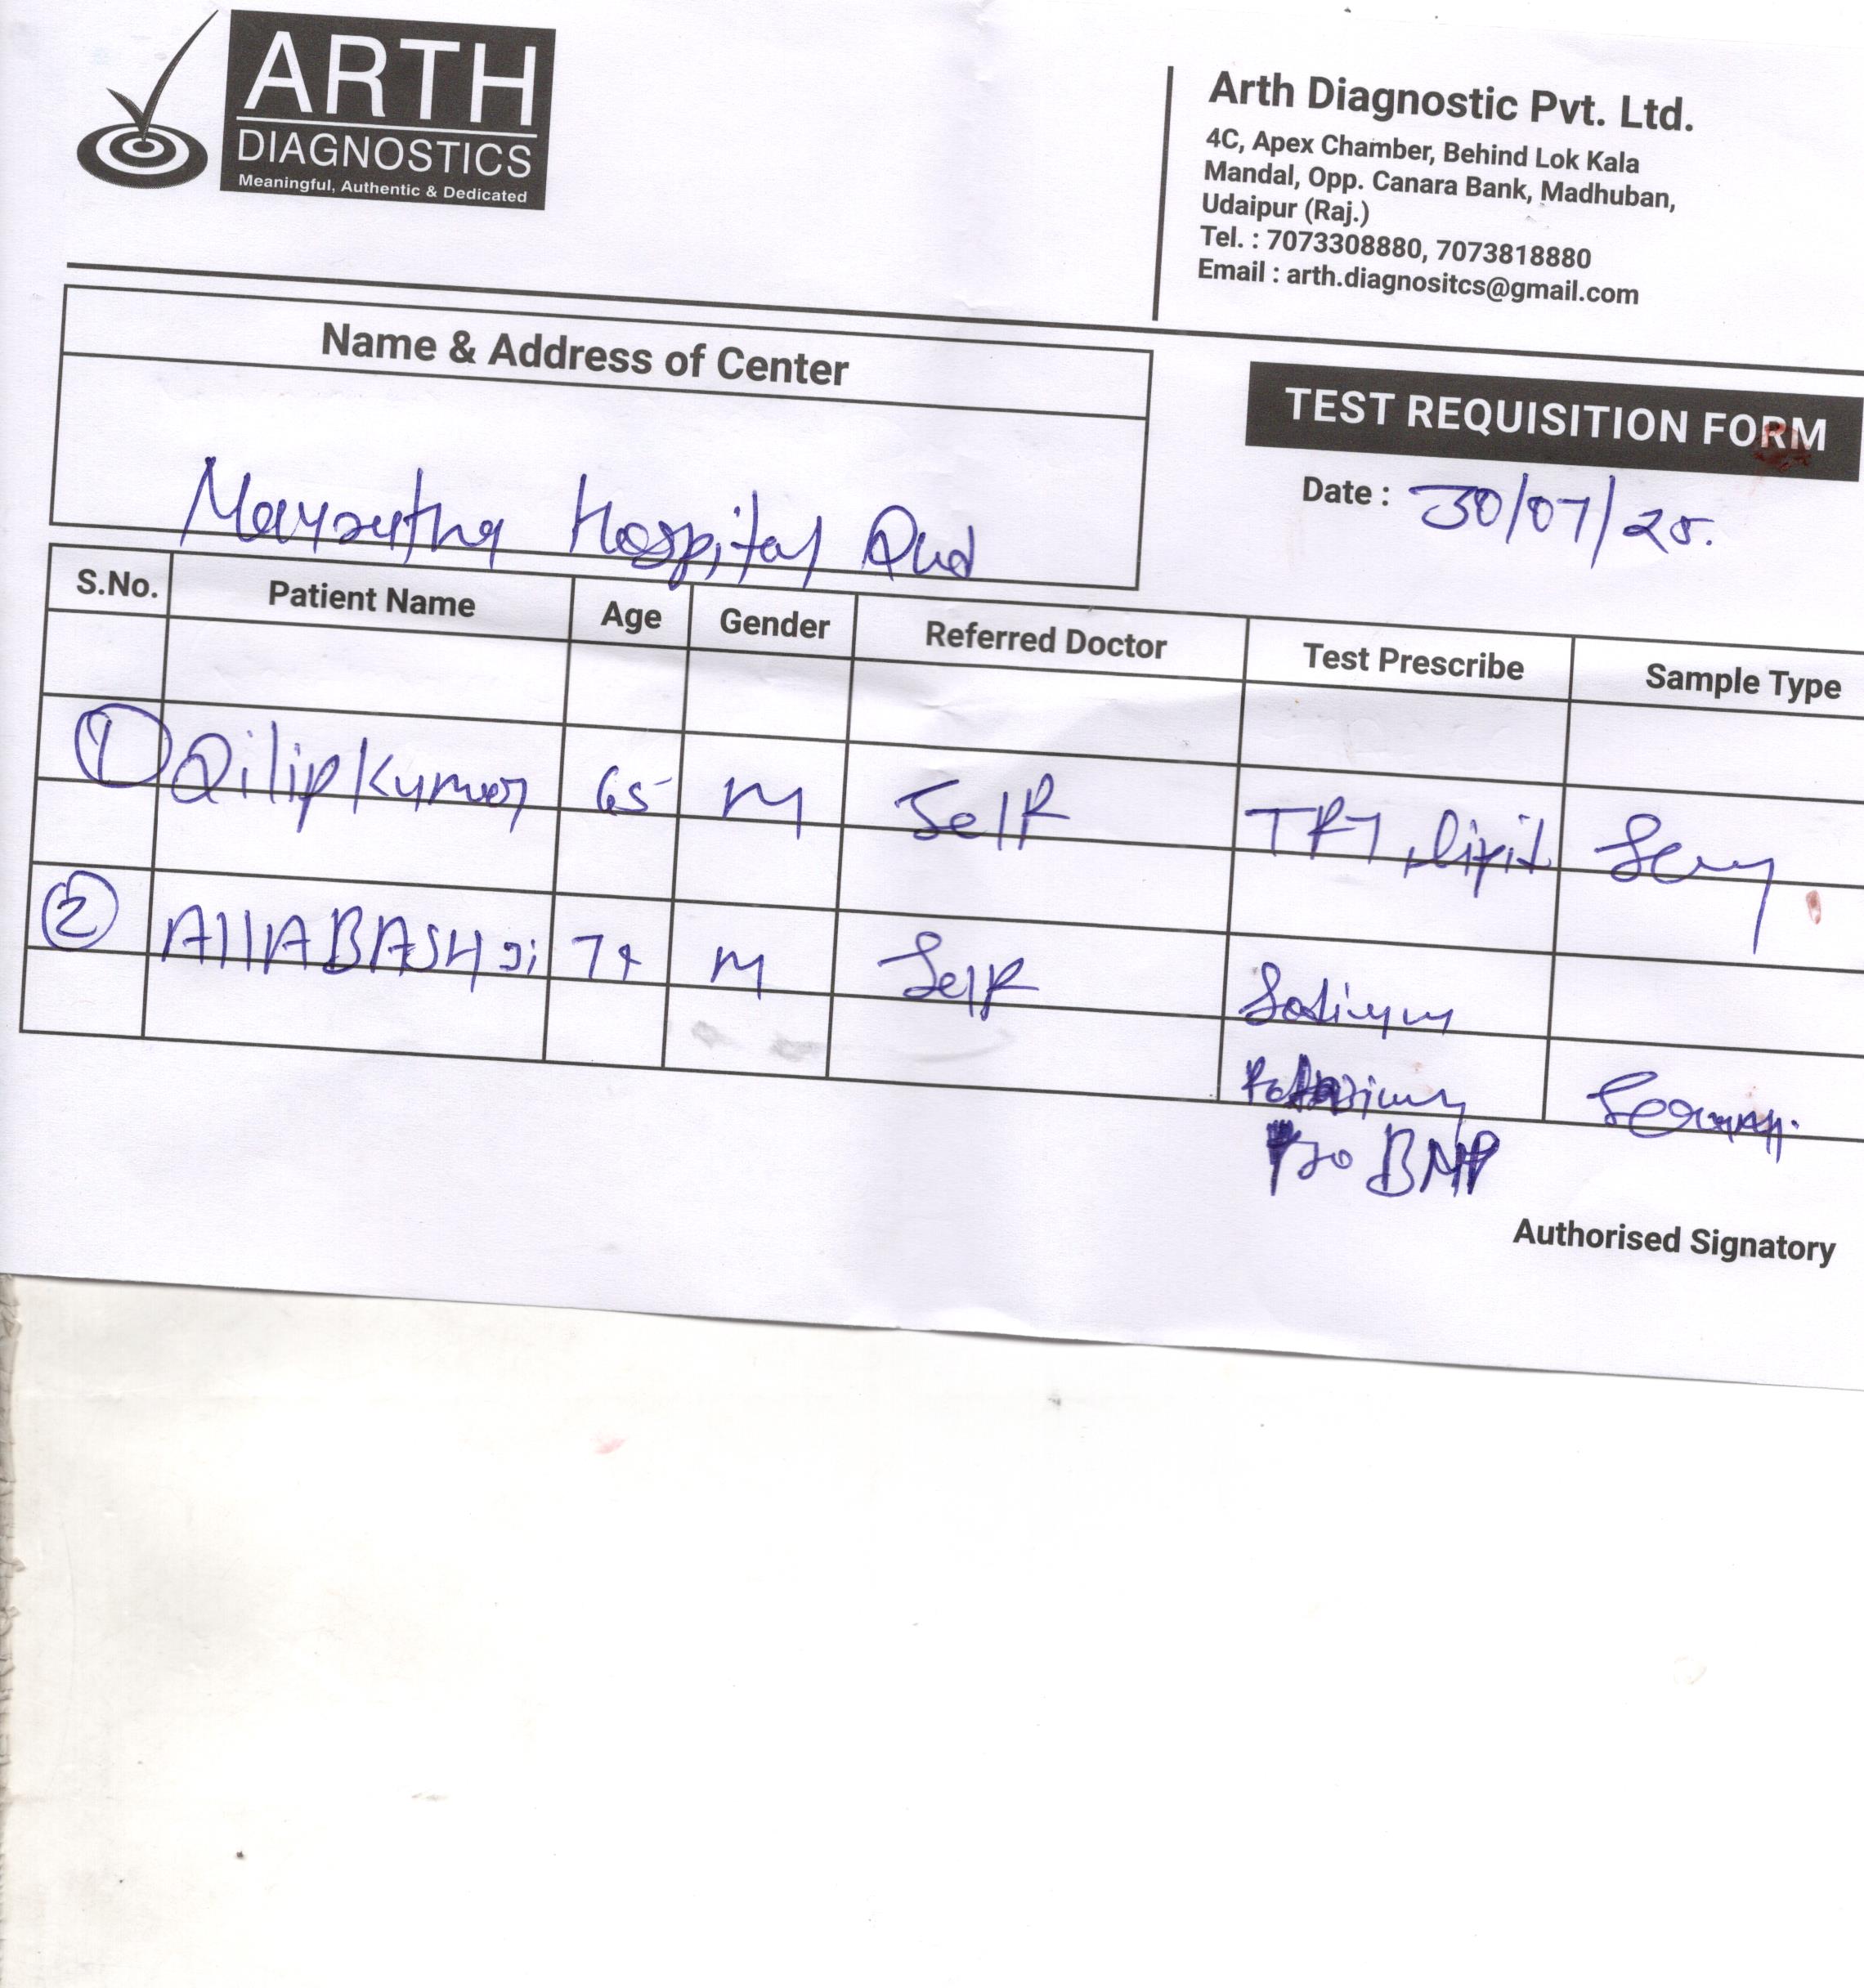 ARTH
DIAGNOSTICS
Meaningful, Authentic & Dedicated
Arth Diagnostic Pvt. Ltd.
4C, Apex Chamber, Behind Lok Kala
Mandal, Opp. Canara Bank, Madhuban,
Udaipur (Raj.)
Tel. : 7073308880, 7073818880
Email : arth.diagnositcs@gmail.com
Name & Address of Center
Hospital
TEST REQUISITION FORM
Date : 30/07/25.
S.No. Patient Name Age Gender Referred Doctor Test Prescribe Sample Type
1 Dilip Kumar 65 M Self TFT, lipid
2 AllABASH Ji M Self Sodium
Potassium Serum
Pro BNP
Authorised Signatory